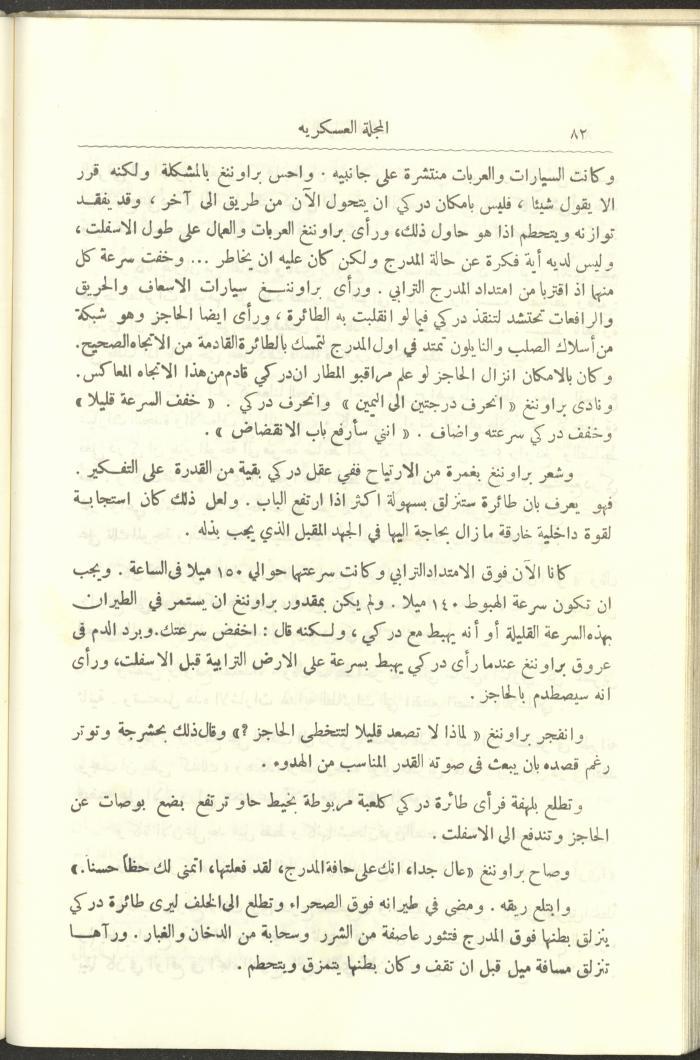 ٨٢
المجلة العسكريه
وكانت السيارات والعربات منتشرة على جانبيه . واحس براوننغ بالمشكلة ولكنه قرر
الا يقول شيئا ، فليس بامكان دركي ان يتحول الآن من طريق الى آخر ، وقد يفقد
توازنه ويتحطم اذا هو حاول ذلك، ورأى براوننغ العربات والعمال على طول الاسفلت ،
وليس لديه أية فكرة عن حالة المدرج ولكن كان عليه ان يخاطر ... وخفت سرعة كل
منهما اذ اقتربا من امتداد المدرج الترابي . ورأى براوننغ سيارات الاسعاف والحريق
والرافعات تحتشد لتنقذ دركي فيما لو انقلبت به الطائرة ، ورأى ايضا الحاجز وهو شبكة
من أسلاك الصلب والنايلون تمتد في اول المدرج لتمسك بالطائرة القادمة من الاتجاه الصحيح.
وكان بالامكان انزال الحاجز لو علم مراقبو المطار ان دركي قادم من هذا الاتجاه المعاكس.
ونادى براوننغ « انحرف درجتين الى اليمين » وانحرف دركي . « خفف السرعة قليلا »
وخفف دركي سرعته واضاف . « انني سأرفع باب الانقضاض » .
وشعر براوننغ بغمرة من الارتياح ففي عقل دركي بقية من القدرة على التفكير .
فهو يعرف بان طائرة ستنزلق بسهولة اكثر اذا ارتفع الباب . ولعل ذلك كان استجابة
لقوة داخلية خارقة مازال بحاجة اليها في الجهد المقبل الذي يجب بذله .
كانا الآن فوق الامتداد الترابي وكانت سرعتهما حوالي ١٥٠ ميلا فى الساعة . ويجب
ان تكون سرعة الهبوط ١٤٠ ميلا . ولم يكن بمقدور براوننغ ان يستمر في الطيران
بهذه السرعة القليلة أو أنه يهبط مع دركي ، ولكنه قال : اخفض سرعتك. وبرد الدم فى
عروق براوننغ عندما رأى دركي يهبط بسرعة على الارض الترابية قبل الاسفلت، ورأى
انه سيصطدم بالحاجز .
وانفجر براوننغ « لماذا لا تصعد قليلا لتتخطى الحاجز ?» وقال ذلك بحشرجة وتوتر
رغم قصده بان يبعث في صوته القدر المناسب من الهدوء .
وتطلع بلهفة فرأى طائرة دركي كلعبة مربوطة بخيط حاو ترتفع بضع بوصات عن
الحاجز وتندفع الى الاسفلت .
وصاح براوننغ «عال جدا، انك على حافة المدرج، لقد فعلتها، اتمنى لك حظاً حسناً.»
وابتلع ريقه . ومضى في طيرانه فوق الصحراء وتطلع الى الخلف ليرى طائرة دركي
ينزلق بطنها فوق المدرج فتثور عاصفة من الشرر وسحابة من الدخان والغبار . ورآهـا
تنزلق مسافة ميل قبل ان تقف وكان بطنها يتمزق ويتحطم .